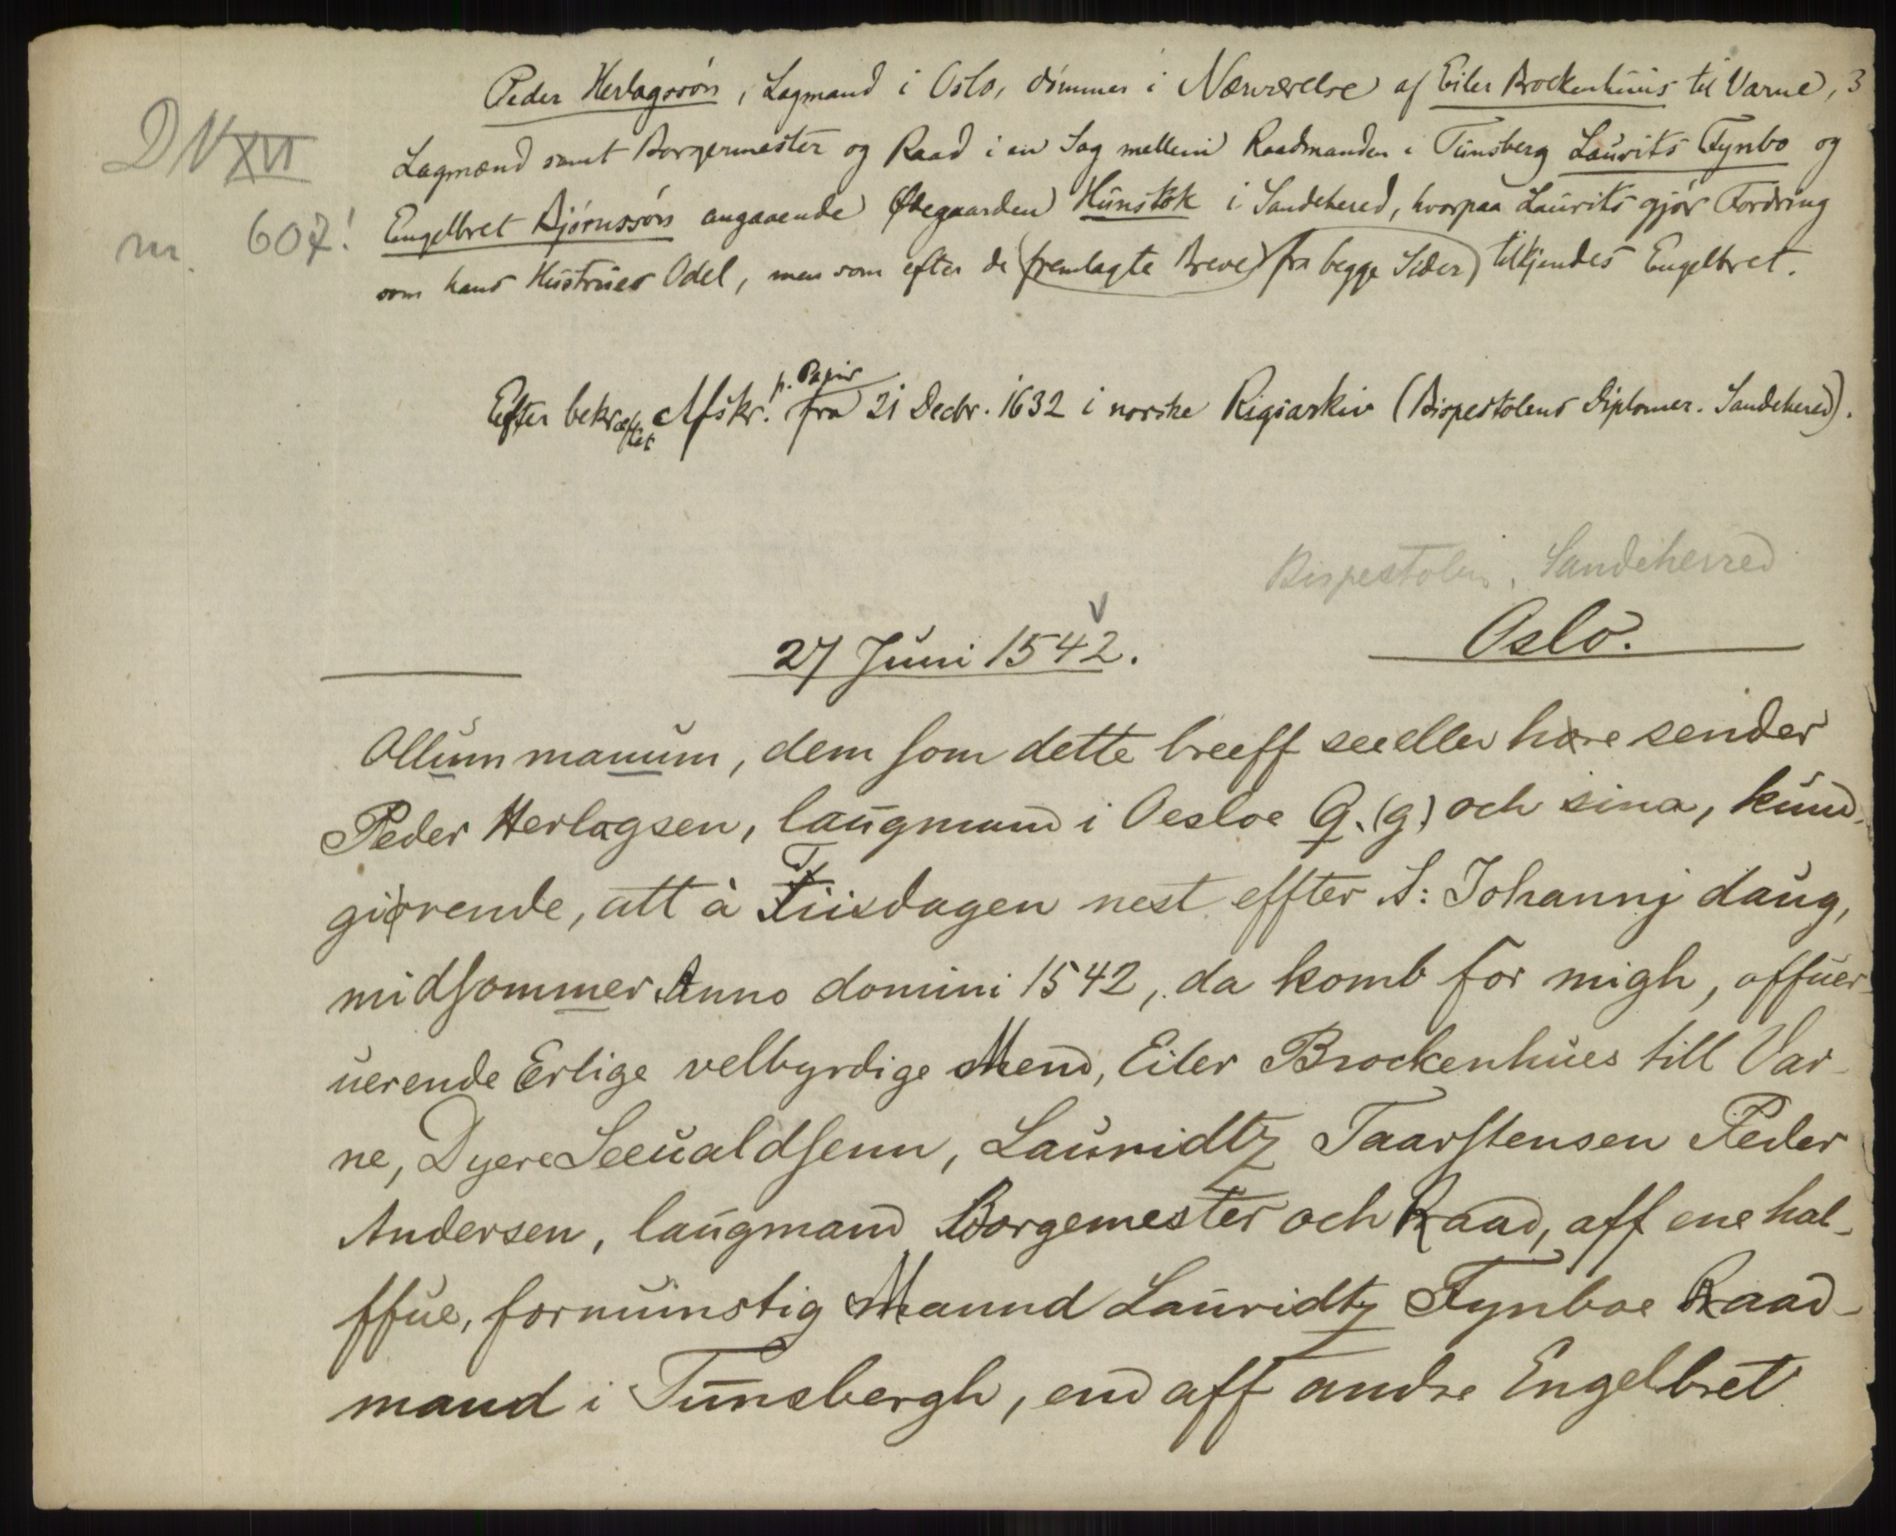 Peder Herlagssön, Lagmand i Oslo, dömmer i Nærværelse af Eiler Brockenhuus til Varne, 3
Lagmænd samt Borgermester og Raad i en Sag mellem Raadmanden i Tunsberg Laurits Fynbo og
Engelbret Björnssön angaaende Ødegaarden Hunstok i Sandehered, hvorpaa Laurits gjör Fordring
som hans Hustrues Odel, men som efter de fremlagte Breve (fra begge Sider) tilkjendes Engelbret.
DN XVI
nr. 607!
p. Papir
Efter bekræftet Afskr. fra 21 Decbr. 1632 i norske Rigsarkiv (Bispestolens Diplomer. Sandehered).
Bispestolen, Sandeherred
27 Juni 1542. Oslo.
Ollum manum, dem som dette breeff seeeller høre sender
Peder Herlagsen, laugmand i Oesloe Q. (g.) och sina, kund-
giørende, att à Tiisdagen nest effter S: Johannj daug,
midsommer Anno domini 1542, da komb for migh, offuer-
uerende Erlige velbyrdige Mend, Eiler Brockenhues till Var-
ne, Dyere Seeualdsenn, Lauridtz Taarstensen Peder
Andersen, laugmand Borgemester och Raad, aff ene hal-
ffue, fornuinstig Mannd Lauridtz Fynboe Raad-
mand i Tunsbergh, end aff andre Engelbret